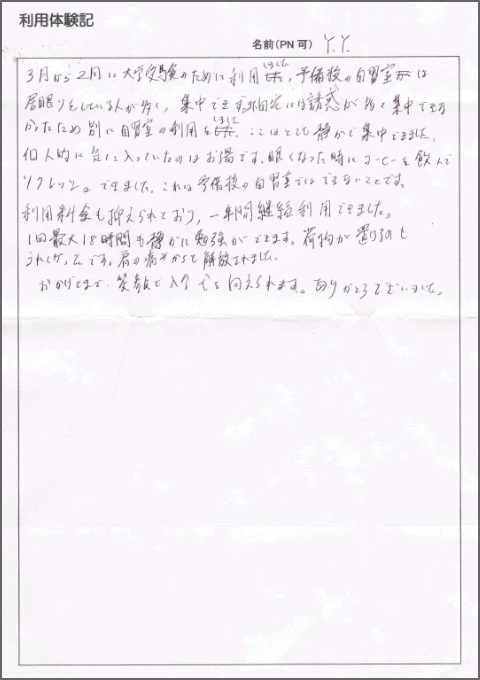 利用体験記
名前(PN 可) Y.Y.
3月から2月に大学受験のために利用しました。予備校の自習室は
居眠りをしている人が多く、集中できず、自宅には誘惑が多く集中できな
かったため別に自習室の利用をしました。ここはとても静かで集中できました。
個人的に気に入っていたのはお湯です。眠くなった時にコーヒーを飲んで
リフレッシュできました。これは予備校の自習室ではできないことです。
利用料金も抑えられており、一年間継続利用できました。
1回最大18時間も静かに勉強ができます。荷物が置けるのも
うれしかったです。肩の痛みからも解放されました。
おかげさまで、笑顔で入学式を向えられます。ありがとうございました。